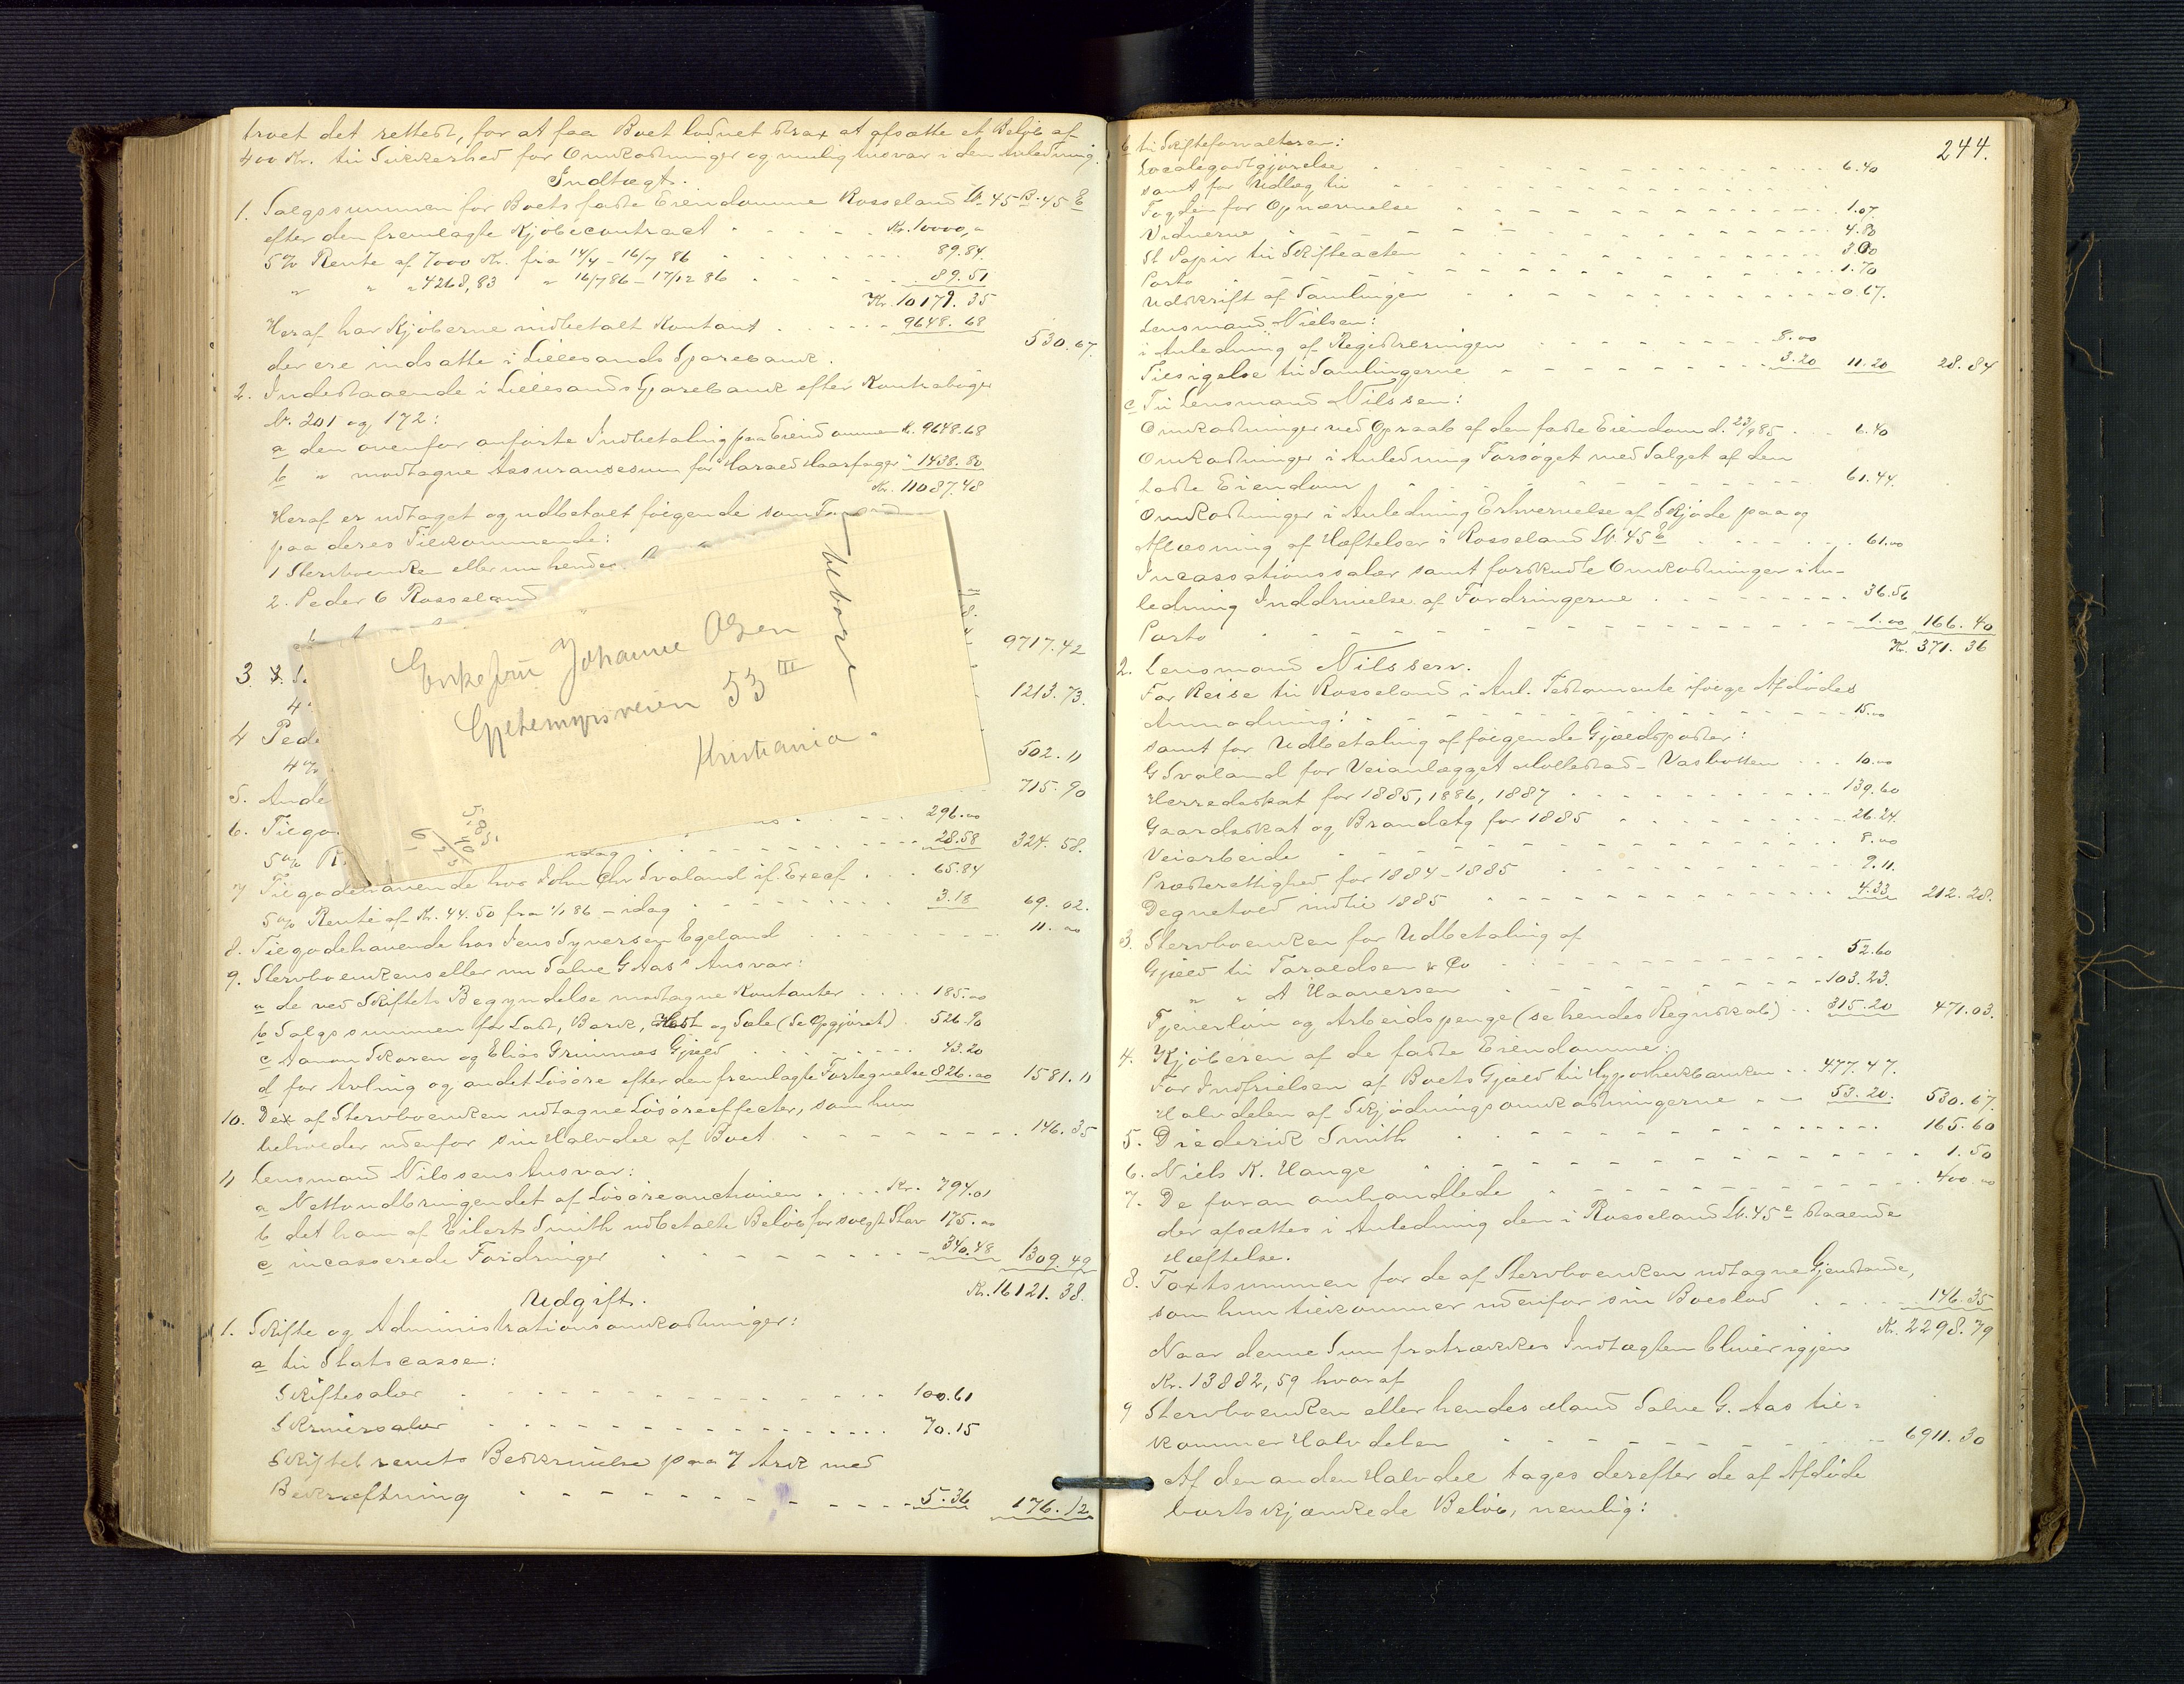 troet det rettest, for at faa Boet sluttet strax at afsætte et Beløb af
400 Kr. til Sikkerhed for Omkostninger og mulig Ansvar i den Anledning.
Indtægt.
1. Salgssummen for Boets faste Eiendomme Rosseland Lb. 45 B. 45 E
efter den fremlagte Kjøbecontract Kr. 10000,„
5% Rente af 7000 Kr. fra 14/4 - 16/7 86 89.84
„ „ „ 4268,83 „ 16/7 86 - 17/12 86 89.51
Kr. 10179.35
Heraf har Kjøberne indbetalt Kontant 9648.68
530.67.
der ere indsatte i Lillesands Sparebank.
2. Indestaaende i Lillesands Sparebank efter Kontrabøger
Nr. 201 og 172:
a den ovenfor anførte Indbetaling paa Eiendommen K. 9648.68
b „ modtagne Assurancesum for "Harald Haarfager" 1438.80
Kr. 11087.48
Heraf er udtaget og udbetalt følgende som
paa deres Tilkommende:
1 Stervboenken eller nu hendes
2. Peder G Rosseland
9717.42
3. 
1213.73.
4 Ped
4%
502.11
5. Ande
715.90
6. Tilgo 296.00
5% R idag 28.58 324.58.
7 Tilgodehavende hos John Chr Svaland if. Execf 65.84
5% Rente af Kr. 44.50 fra 1/1 86 - idag 3.18 69.02.
8. Tilgodehavende hos Jens Syversen Egeland 11.00
9. Stervboenkens eller nu Salve G Aas's Ansvar:
a de ved Skiftets Begyndelse modtagne Kontanter 185.00
b Salgssummen for Last, Bark, Hest og Sæle (se Opgjøret) 526.90
c Aanon Skaren og Elias Grimnes Gjæld 43.20
d for Avling og andet Løsøre efter den fremlagte Fortegnelse 826.00 1581.11
10. De af Stervboenken udtagne Løsøreeffecter, som hun
beholder udenfor sin Halvdel af Boet 146.35
11 Lensmand Nilssens Ansvar:
a Nettoudbringendet af Løsøreauctionen Kr. 794.01
b det ham af Eilert Smith udbetalte Beløb for solgt Stav 175.00
c incasserede Fordringer 340.48 1309.49
Kr. 16121.38.
Udgift.
1. Skifte og Administrationsomkostninger:
a til Statscassen:
Skiftesalær 100.61
Skriversalær 70.15
Skiftebrevets Beskrivelse paa 7 Ark med
Bekræftning 5.36 176.12
Enkefru Johanne Olsen
Gjetemyrsveien 53 III
Kristiania.
244.
b til Skifteforvalteren:
Localegodtgjørelse 6.40
samt for Udlæg til
Fogden for Opnævnelse 1.07.
Vidnerne 4.80
St Papir til Skifteacten 3.00
Porto 1.70
Udskrift af Samlingen 0.67.
Lensmand Nielsen:
i Anledning af Registreringen 8.00
Tilsigelse til Samlingerne 3.20 11.20 28.84
c Til Lensmand Nilssen:
Omkostninger ved Opraab af den faste Eiendom d. 23/9 85 6.40
Omkostninger i Anledning Forsøget med Salget af den
faste Eiendom 61.44.
Omkostninger i Anledning Erhvervelse af Skjøde paa og
Aflæsning af Hæftelser i Rosseland Lb. 45 E 61.00
Incassationssalær samt forskudte Omkostninger i An-
ledning Inddrivelse af Fordringerne 36.56
Porto 1.00 166.40
Kr. 371.36
2. Lensmand Nilssen.
For Reise til Rosseland i Anl. Testamente ifølge Afdødes
Anmodning: 15.00
samt for Udbetaling af følgende Gjældsposter:
G Svaland for Veianlægget Mollestad - Vasbotten 10.00
Herredsskat for 1885, 1886, 1887 139.60
Gaardsskat og Brandctg for 1885 26.24.
Veiarbeide 8.00
Præsterettighed for 1884-1885 9.11.
Degnetold indtil 1885 4.33 212.28.
3. Stervboenken for Udbetaling af
Gjæld til Taraldsen & Co 52.60
„ „ A Haaversen 103.23.
Tjenerløn og Arbeidspenge (se hendes Regnskab) 315.20 471.03.
4. Kjøberen af de faste Eiendomme:
For Indfrielsen af Boets Gjæld til Hypothekbanken 477.47.
Halvdelen af Skjødningsomkostningerne 53.20. 530.67.
5. Diederik Smith 165.60
6. Niels K. Hauge 1.50
7. De foran omhandlede 400.00
der afsættes i Anledning den i Rosseland Lb. 45 e staaende
Hæftelse.
8. Taxtsummen for de af Stervboenken udtagne Gjenstande,
som hun tilkommer udenfor sin Boeslod 146.35
Kr. 2298.79
Naar denne Sum fratrækkes Indtægten bliver igjen
Kr. 13882,59 hvoraf
9 Stervboenken eller hendes Mand Salve G. Aas til-
kommer Halvdelen 6911.30
Af den anden Halvdel tages derefter de af Afdøde
bortskjænkede Beløb, nemlig: